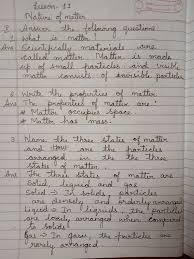 Lesson - 11
Nature of matter
I Answer the following questions
1. What is matter.
Ans Scientifically materials were
called matter. Matter is made
up of small particles and visible
matter consists of invisible particles
2. Write the properties of matter
Ans The properties of matter are:
* Matter occupies Space
* Matter has mass.
3. Name the three states of matter
and how are the particles
arranged in the the three
state's of matter.
Ans The three states of matter are
Solid, liquid and gas
Solid → In solids, particles
are densely and orderly arranged
Liquid → In liquids, the particles
are loosely arranged when compared
to solids.
Gas → In gases, the particles
rarely arranged.